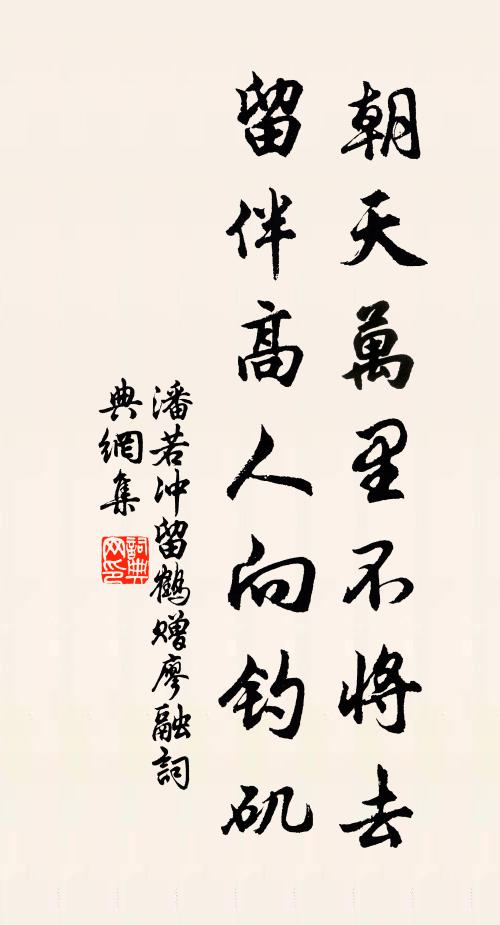 朝天萬里不將去
留伴高人向钓矶
潘若冲留鶴赠廖融詞
典網集
詞典
网印